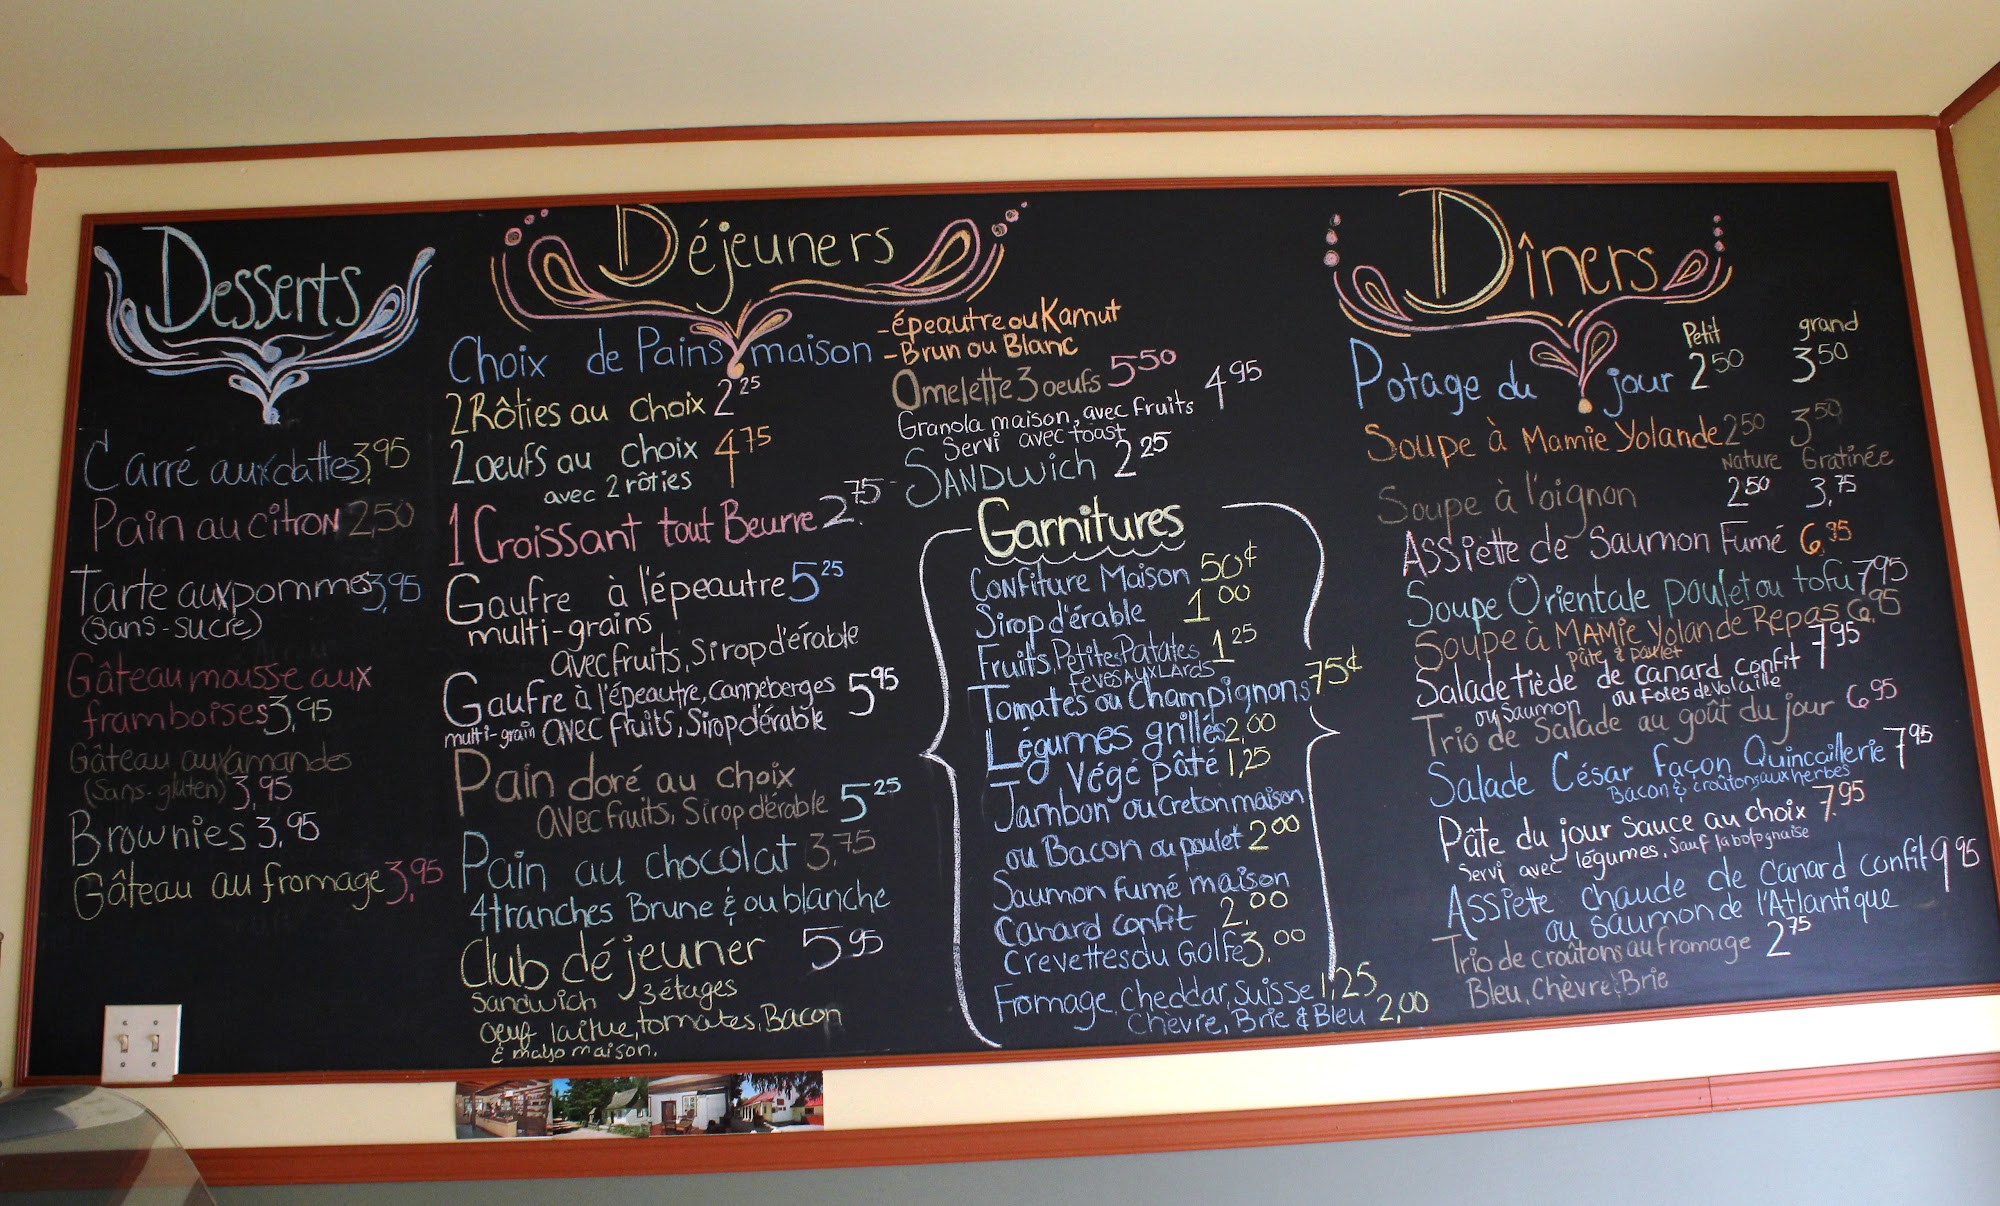 Desserts
Carré aux dattes 3,95
Pain au citron 2,50
Tarte aux pommes 3,95
(sans-sucre)
Gâteau mousse aux
framboises 3,95
Gâteau aux amandes
(sans-gluten) 3,95
Brownies 3,95
Gâteau au fromage 3,95
Déjeuners
Choix de Pains maison
- épeautre ou Kamut
- Brun ou Blanc
2 Rôties au choix 2 25
2 oeufs au choix 4 75
avec 2 rôties
1 Croissant tout Beurre 2.75
Gaufre à l'épeautre 5 25
multi-grains
avec fruits, Sirop d'érable
Gaufre à l'épeautre, Canneberges 5 95
multi-grain avec fruits, Sirop d'érable
Pain doré au choix
avec fruits, Sirop d'érable 5 25
Pain au chocolat 3,75
4 tranches Brune & ou blanche
Club déjeuner 5 95
Sandwich 3 étages
oeuf laitue, tomates, Bacon
& mayo maison.
Omelette 3 oeufs 5 50
Granola maison, avec fruits 4 95
Servi avec toast
Sandwich 2 25
Garnitures
Confiture Maison 50¢
Sirop d'érable 1 00
Fruits, Petites Patates 1 25
feves aux Lards
Tomates ou Champignons 75¢
Légumes grillés 2,00
Végé pâté 1,25
Jambon ou Creton maison
ou Bacon ou poulet 2 00
Saumon fumé maison
Canard confit 2.00
Crevettes du Golfe 3.00
Fromage, cheddar, suisse 1,25
Chèvre, Brie & Bleu 2,00
Dîners
Petit grand
Potage du jour 2 50 3 50
Soupe à Mamie Yolande 2 50 3 50
Nature Gratinée
Soupe à l'oignon 2 50 3,75
Assiette de Saumon Fumé 6,95
Soupe Orientale poulet ou tofu 7 95
Soupe à MAMie Yolande Repas 6,95
pâte & poulet
Salade tiède de canard confit 7 95
ou Saumon ou Foies de volaille
Trio de Salade au goût du jour 6 95
Salade César façon Quincaillerie 7 95
Bacon & croûtons aux herbes
Pâte du jour sauce au choix 7.95
Servi avec légumes, sauf la bolognaise
Assiete chaude de canard confit 9 95
ou saumon de l'Atlantique
Trio de croûtons au fromage 2 75
Bleu, Chèvre, Brie